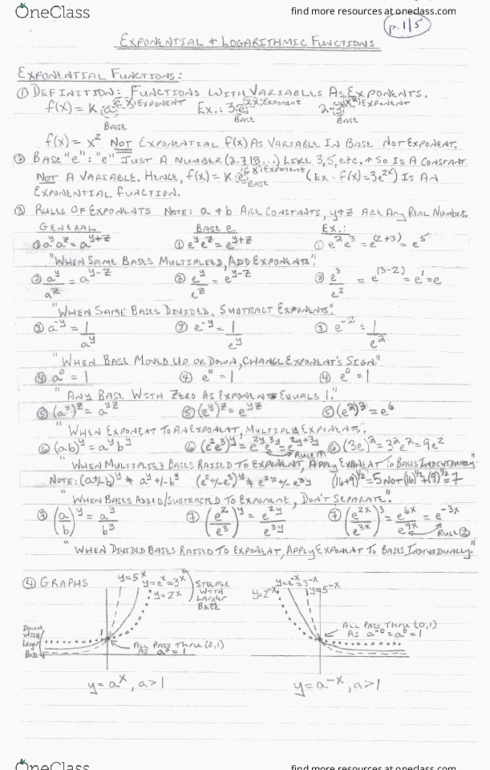 OneClass
find more resources at oneclass.com
p.1/5
EXPONENTIAL + LOGARITHMIC FUNCTIONS
EXPONENTIAL FUNCTIONS:
① DEFINITION: FUNCTIONS WITH VARIABLES AS EXPONENTS.
f(x) = K a^(cx) EXPONENT Ex.: 3e^(2x) EXPONENT 2·3^(x²) EXPONENT
BASE BASE BASE
f(x) = x² NOT EXPONENTIAL f(x) AS VARIABLE IN BASE NOT EXPONENT.
② BASE "e": "e" JUST A NUMBER (2.718...) LIKE 3, 5, etc. + SO IS A CONSTANT
NOT A VARIABLE. HENCE, f(x) = K e^(cx) EXPONENT (Ex: f(x) = 3e^(2x)) IS AN
BASE
EXPONENTIAL FUNCTION.
③ RULES OF EXPONENTS NOTE: a + b ARE CONSTANTS, y+z ARE ANY REAL NUMBERS
GENERAL BASE e Ex.:
① a^y a^z = a^(y+z) ① e^y e^z = e^(y+z) ① e² e³ = e^(2+3) = e⁵
"WHEN SAME BASES MULTIPLIED, ADD EXPONENTS."
② a^y/a^z = a^(y-z) ② e^y/e^z = e^(y-z) ② e³/e² = e^(3-2) = e¹ = e
"WHEN SAME BASES DIVIDED, SUBTRACT EXPONENTS."
③ a^(-y) = 1/a^y ③ e^(-y) = 1/e^y ③ e^(-2) = 1/e²
"WHEN BASE MOVED UP OR DOWN, CHANGE EXPONENT'S SIGN."
④ a⁰ = 1 ④ e⁰ = 1 ④ e⁰ = 1
"ANY BASE WITH ZERO AS EXPONENT EQUALS 1."
⑤ (a^y)^z = a^(yz) ⑤ (e^y)^z = e^(yz) ⑤ (e²)³ = e⁶
"WHEN EXPONENT TO AN EXPONENT, MULTIPLY EXPONENTS.
⑥ (ab)^y = a^y b^y ⑥ (e²e³)^y = e^(2y) e^(3y) = e^(2y+3y) ⑥ (3e)² = 3²e² = 9e²
"WHEN MULTIPLIED BASES RAISED TO EXPONENT, APPLY EXPONENT TO BASES INDIVIDUALLY."
NOTE: (a+/-b)^y ≠ a^y +/- b^y (e²+/-e³)^y ≠ e^(2y) +/- e^(3y) (16+9)^(1/2) = 5 NOT (16)^(1/2) + (9)^(1/2) = 7
"WHEN BASES ADDED/SUBTRACTED TO EXPONENT, DON'T SEPARATE."
⑦ (a/b)^y = a^y/b^y ⑦ (e²/e³)^y = e^(2y)/e^(3y) ⑦ (e^(2x)/e^(3x))³ = e^(6x)/e^(9x) = e^(-3x)
RULE ②
"WHEN DIVIDED BASES RAISED TO EXPONENT, APPLY EXPONENT TO BASES INDIVIDUALLY."
④ GRAPHS
y=5^x y=e^x y=3^x y=2^x
STEEPER WITH LARGER BASE
ALL PASS THRU (0,1)
AS a⁰ = 1
y = a^x, a>1
y=5^(-x)
ALL PASS THRU (0,1)
AS a^(-0) = a⁰ = 1
y = a^(-x), a>1
OneClass
find more resources at oneclass.com